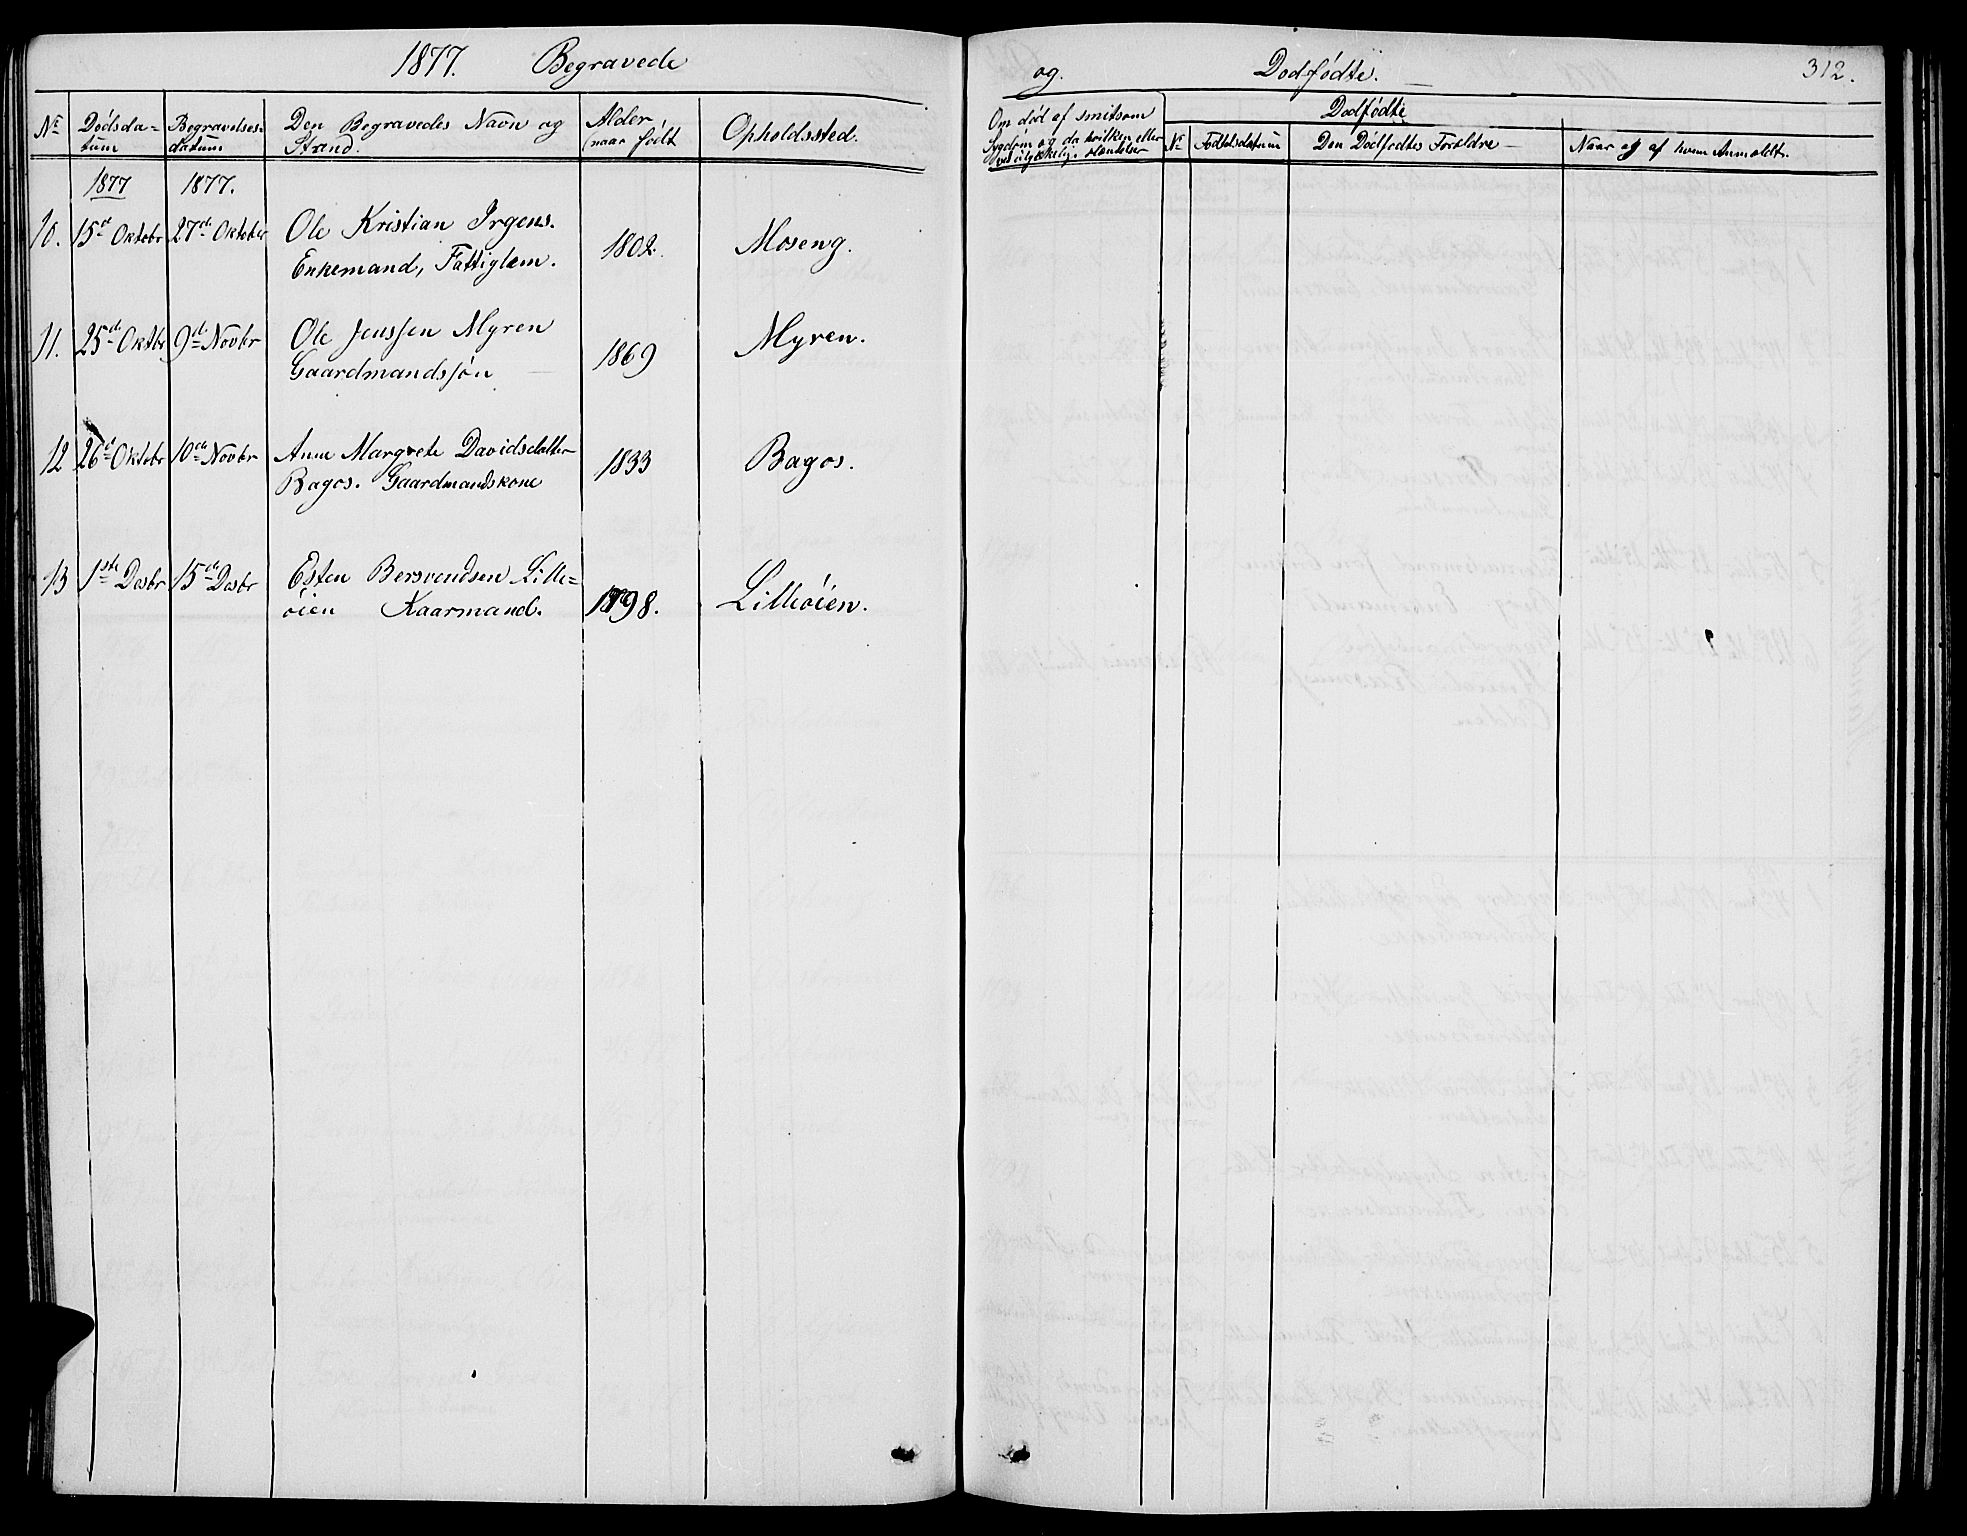 1877. Begravede
No Dødsda= Begravelses= Den Begravedes Navn og Alder Opholdssted.
tum datum Stand. (naar født
1877 1877.
10. 15de Oktobr 27de Oktober Ole Kristian Irgens. 1802. Moseng.
Enkemand, Fattiglem.
11. 25de Oktbr 9de Novbr Ole Jenssen Myren 1869 Myren.
Gaardmandssøn
12 26de Oktobr 10de Novbr Anne Margrete Davidsdatter 1833 Bagos.
Bagos. Gaardmandskone
13 1ste Desbr 15de Desbr Esten Bersvendsen Lille= 1798. Lilleøien.
øien Kaarmand.
og. Dodfødte. 312.
Om død af smitsom Dodfødte
Sygdom og da hvilken eller No Fødselsdatum Den Dødfødtes Forældre Naar og af hvem Anmeldt.
ved ulykkelig. Hændelser